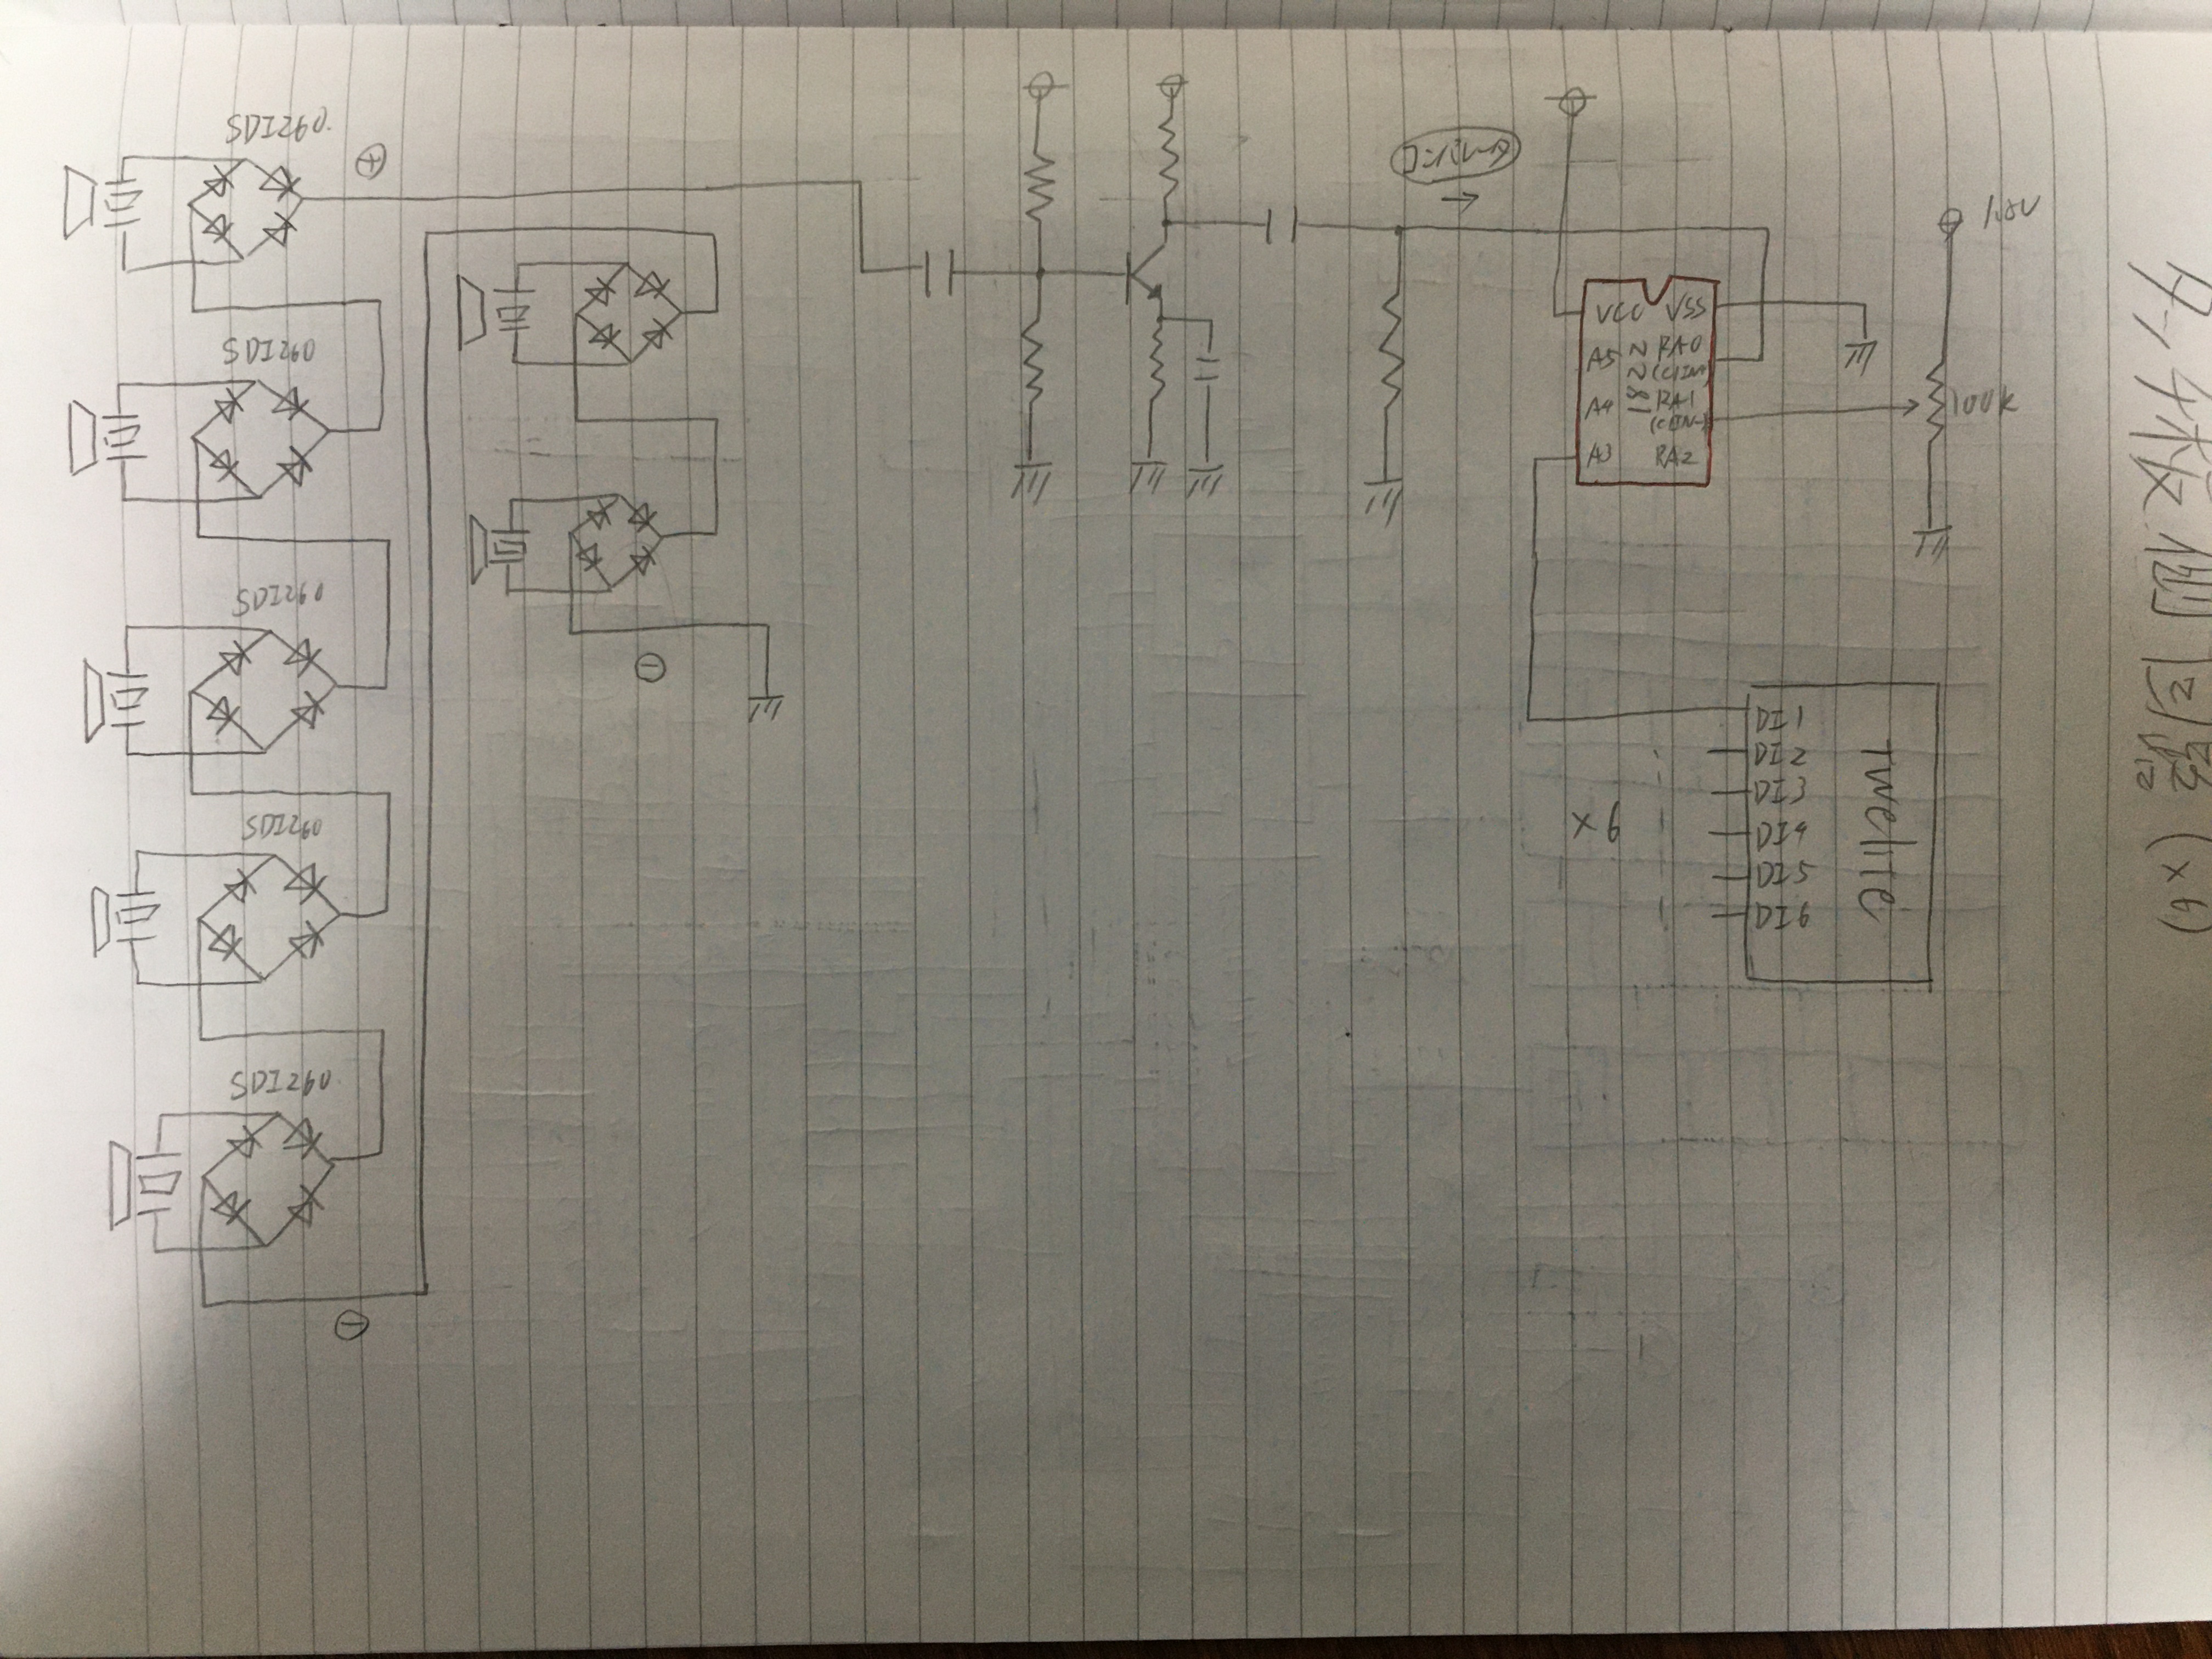 SDI260
⊕
SDI260
SDI260
SDI260
SDI260
⊖
⊖
コンパレータ
→
VCC VSS
A5 RA0
(CIN+)
A4 RA1
(CIN-)
A3 RA2
100k
DI1
DI2
DI3
DI4
DI5
DI6
×6
Twelite
(×6)